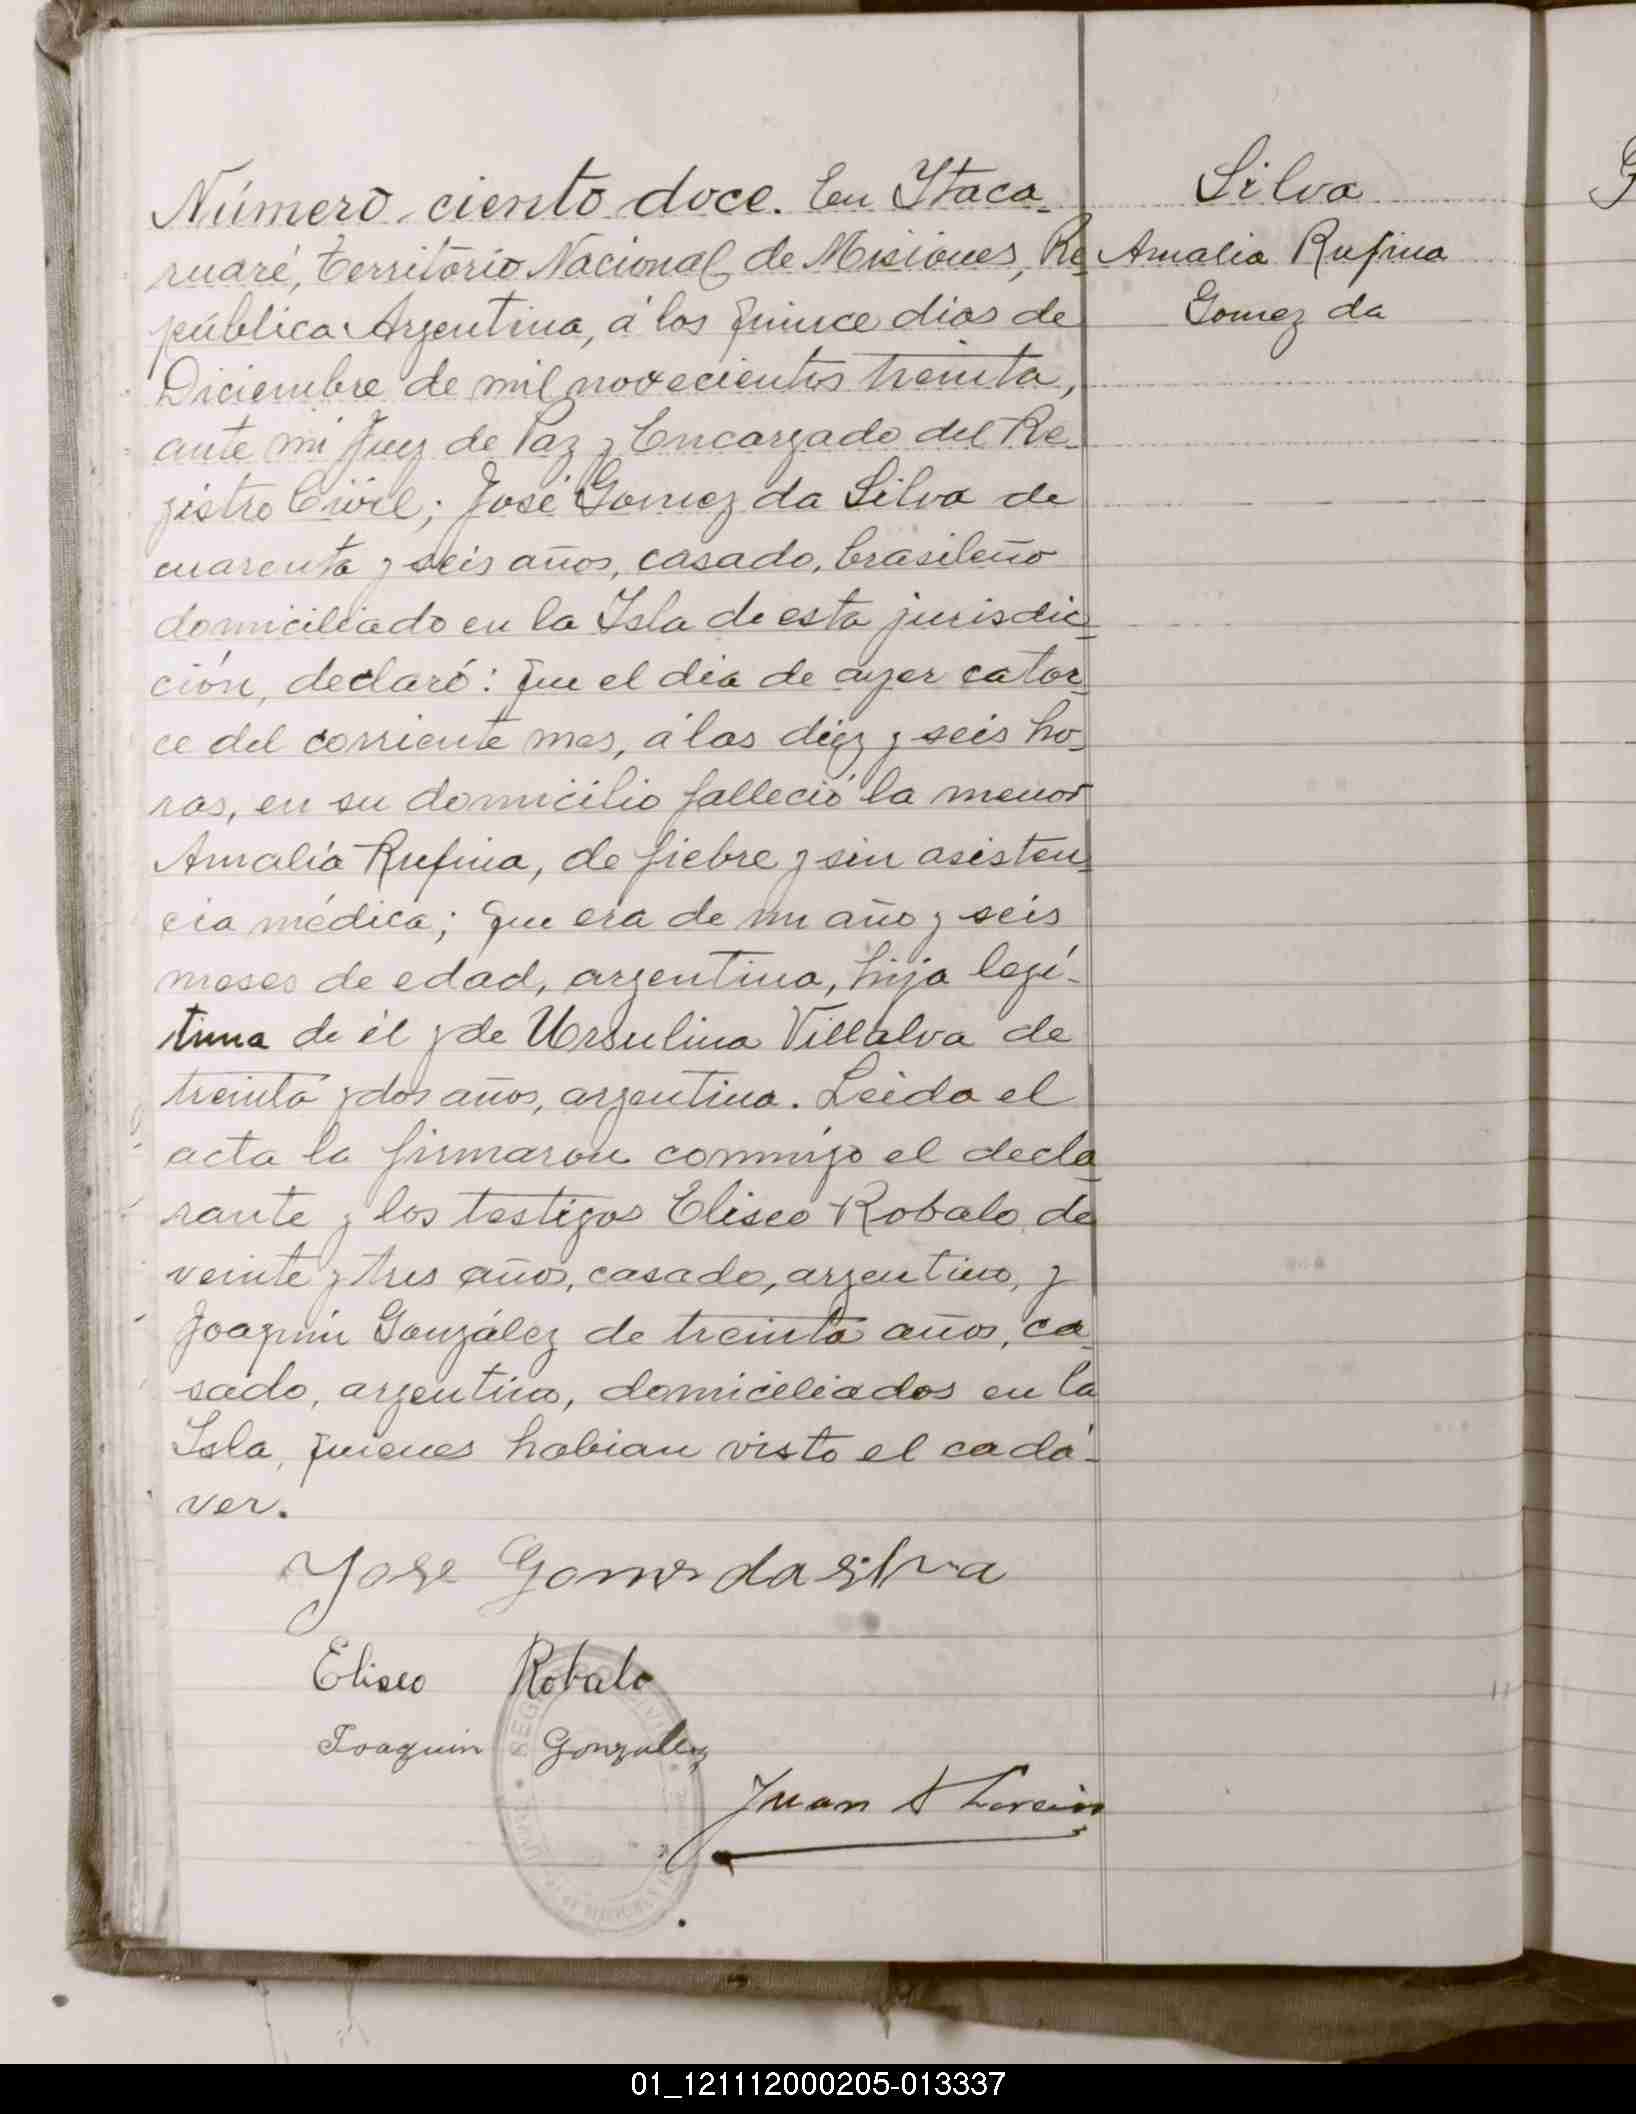 Número ciento doce. En Itaca-
ruaré, Territorio Nacional de Misiones, Re-
pública Argentina, á los quince dias de
Diciembre de mil novecientos treinta,
ante mi Juez de Paz y Encargado del Re-
gistro Civil; José Gomez da Silva de
cuarenta y seis años, casado, brasileño
domiciliado en la Isla de esta jurisdic-
ción, declaró: Que el dia de ayer cator-
ce del corriente mes, á las diez y seis ho-
ras, en su domicilio falleció la menor
Amalia Rufina, de fiebre y sin asisten-
cia médica; que era de un año y seis
meses de edad, argentina, hija legí-
tima de él y de Ursulina Villalva de
treinta y dos años, argentina. Leida el
acta la firmaron conmigo el decla-
rante y los testigos Eliseo Robalo de
veinte y tres años, casado, argentino, y
Joaquin González de treinta años, ca-
sado, argentino, domiciliados en la
Isla, quienes habian visto el cadá-
ver.
Silva
Amalia Rufina
Gomez da
Jose Gomes da silva
Eliseo Robalo
Joaquin Gonzalez
Juan A
01_121112000205-013337